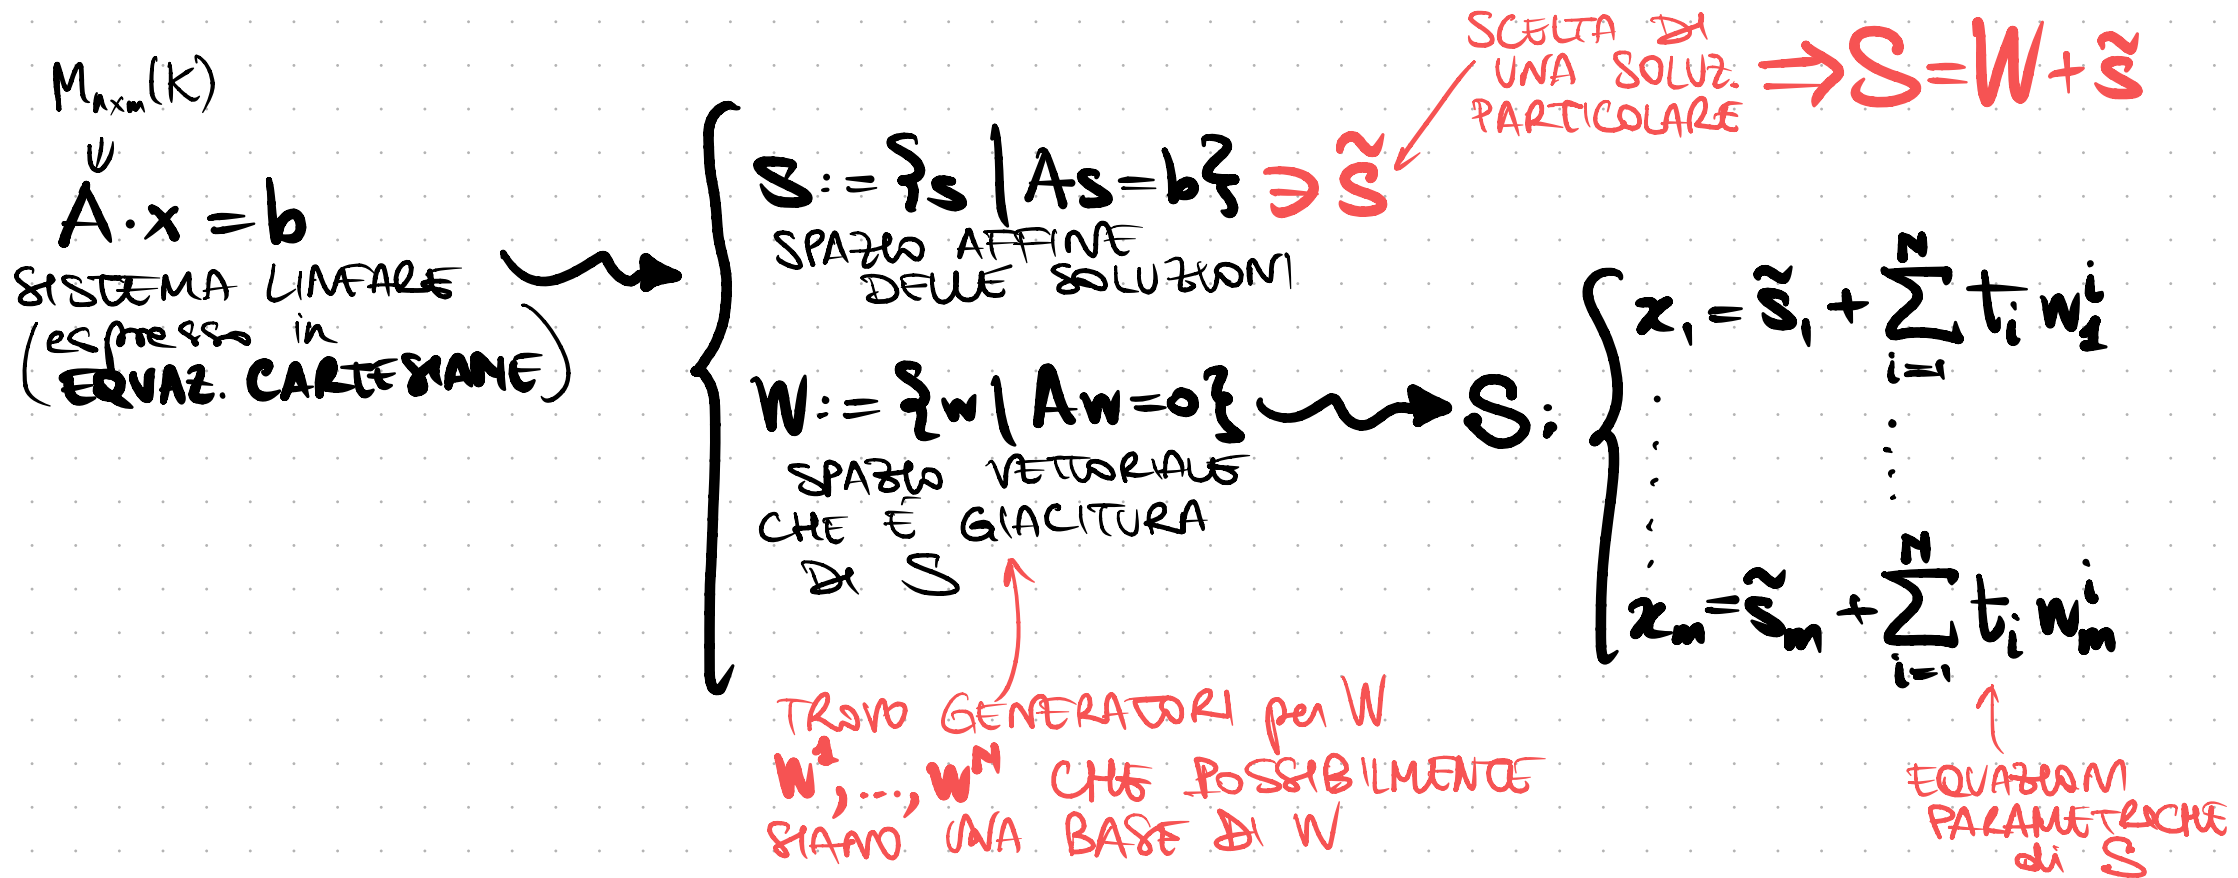 M_{n×m}(K)
A·x = b
SISTEMA LINEARE
(espresso in
EQUAZ. CARTESIANE)
S := {s | As = b} ∋ s̃
SPAZIO AFFINE
DELLE SOLUZIONI
SCELTA DI
UNA SOLUZ.
PARTICOLARE
⇒ S = W + s̃
W := {w | Aw = 0}
SPAZIO VETTORIALE
CHE È GIACITURA
DI S
TROVO GENERATORI per W
w^1, ..., w^N CHE POSSIBILMENTE
SIANO UNA BASE DI W
S:
x_1 = s̃_1 + ∑_{i=1}^{N} t_i w_1^i
x_m = s̃_m + ∑_{i=1}^{N} t_i w_m^i
EQUAZIONI
PARAMETRICHE
di S